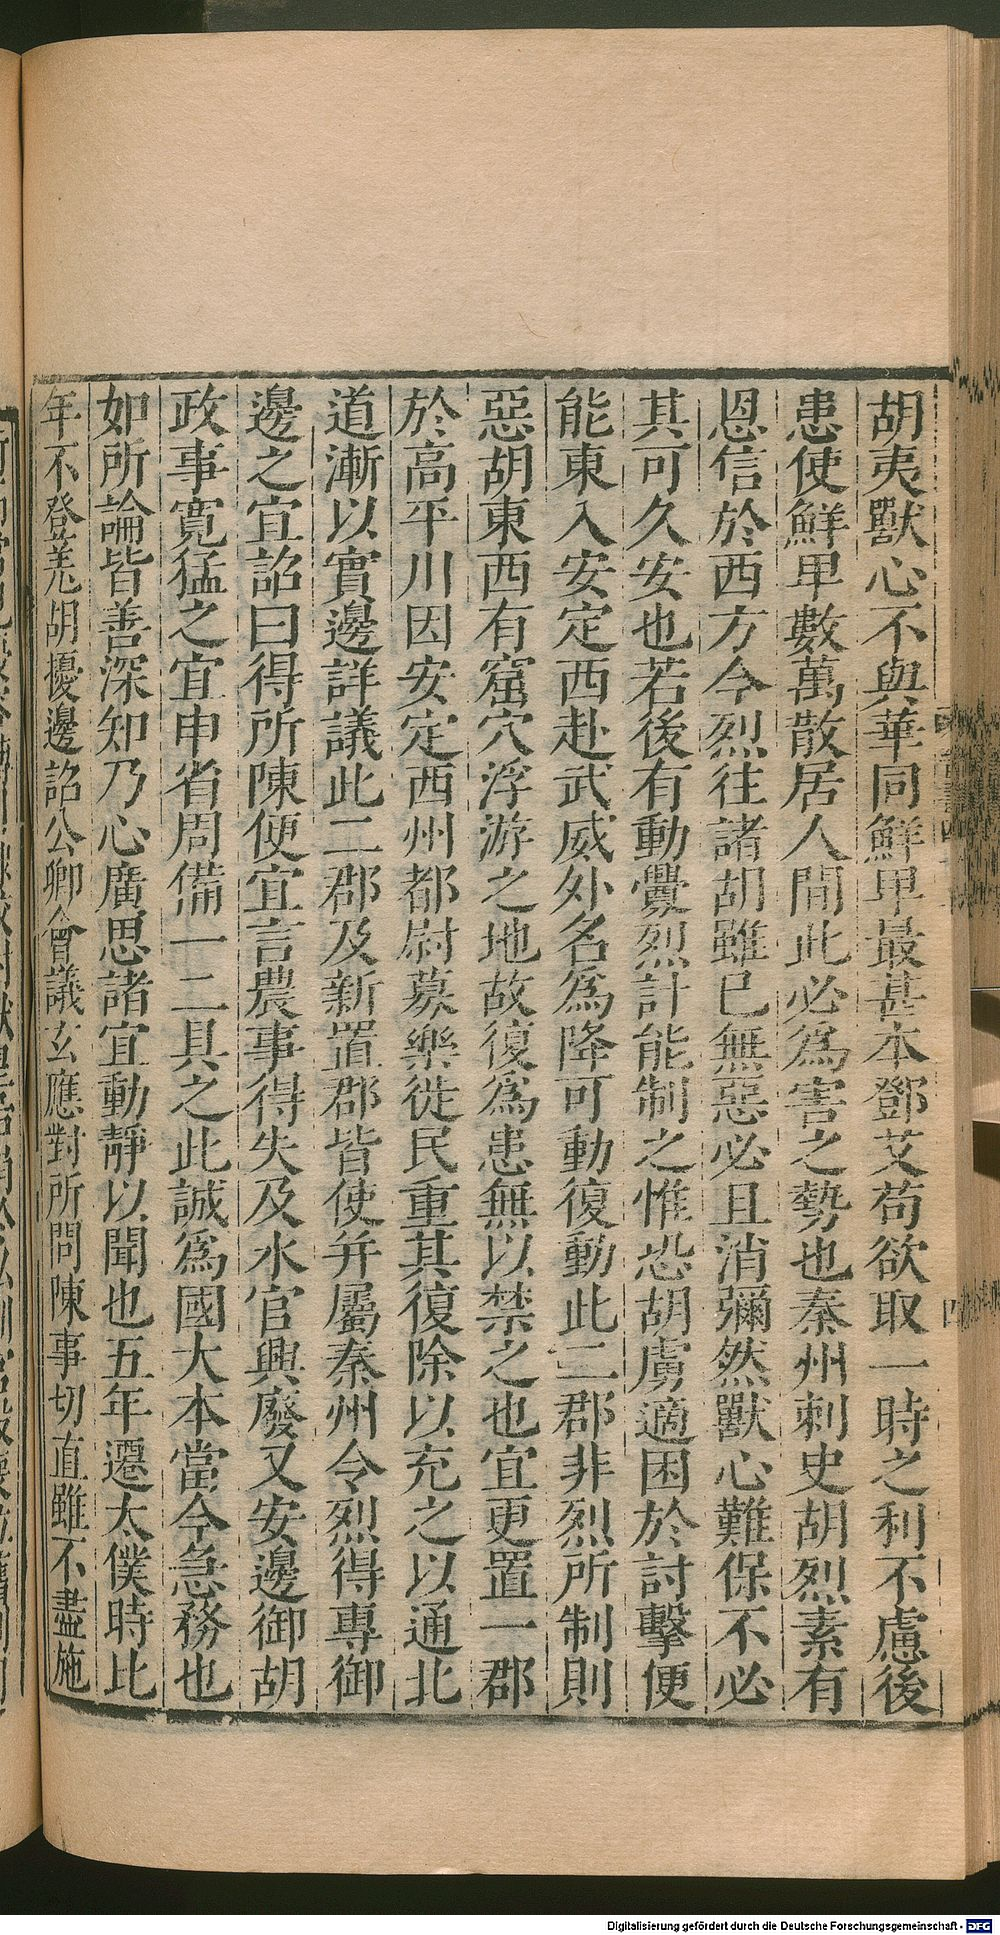 胡夷獸心不與華同鮮卑最甚本鄧艾苟欲取一時之利不慮後
患使鮮卑數萬散居人間此必為害之勢也秦州刺史胡烈素有
恩信於西方今烈往諸胡雖已無惡必且消彌然獸心難保不必
其可久安也若後有動釁烈計能制之惟恐胡虜適困於討擊便
能東入安定西赴武威外名為降可動復動此二郡非烈所制則
惡胡東西有窟穴浮游之地故復為患無以禁之也宜更置一郡
於高平川因安定西州都尉募樂徙民重其復除以充之以通北
道漸以實邊詳議此二郡及新置郡皆使并屬秦州令烈得專御
邊之宜詔曰得所陳便宜言農事得失及水官興廢又安邊御胡
政事寬猛之宜申省周備一二具之此誠為國大本當今急務也
如所論皆善深知乃心廣思諸宜動靜以聞也五年遷太僕時比
年不登羌胡擾邊詔公卿會議玄應對所問陳事切直雖不盡施
Digitalisierung gefördert durch die Deutsche Forschungsgemeinschaft - DFG